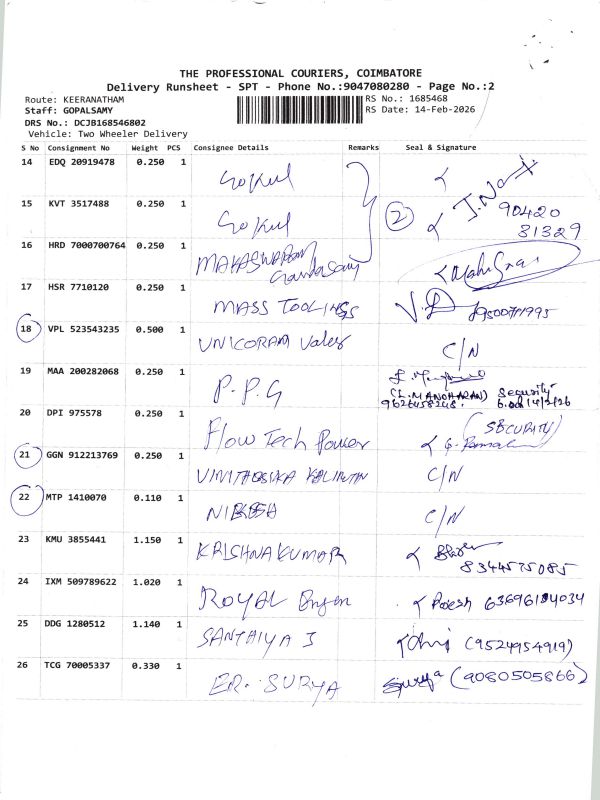 THE PROFESSIONAL COURIERS, COIMBATORE
Delivery Runsheet - SPT - Phone No.:9047080280 - Page No.:2
Route: KEERANATHAM
RS No.: 1685468
Staff: GOPALSAMY
RS Date: 14-Feb-2026
DRS No.: DCJB168546802
Vehicle: Two Wheeler Delivery
S No Consignment No Weight PCS Consignee Details Remarks Seal & Signature
14 EDQ 20919478 0.250 1 Gokul
15 KVT 3517488 0.250 1 Gokul 2 90420
31329
16 HRD 7000700764 0.250 1
17 HSR 7710120 0.250 1 MASS TOOLINGS
18 VPL 523543235 0.500 1 UNICORAM Valves C/N
19 MAA 200282068 0.250 1 P.P.G (L. MANOHARAN) Security
9626458248. 14/2/26
20 DPI 975578 0.250 1 Flow Tech Power (SECURITY)
21 GGN 912213769 0.250 1 C/N
22 MTP 1410070 0.110 1 C/N
23 KMU 3855441 1.150 1 KRISHNAKUMAR
8344575085
24 IXM 509789622 1.020 1 ROYAL
25 DDG 1280512 1.140 1 SANTHIYA J (9524954919)
26 TCG 70005337 0.330 1 ER. SURYA Surya (9080505866)